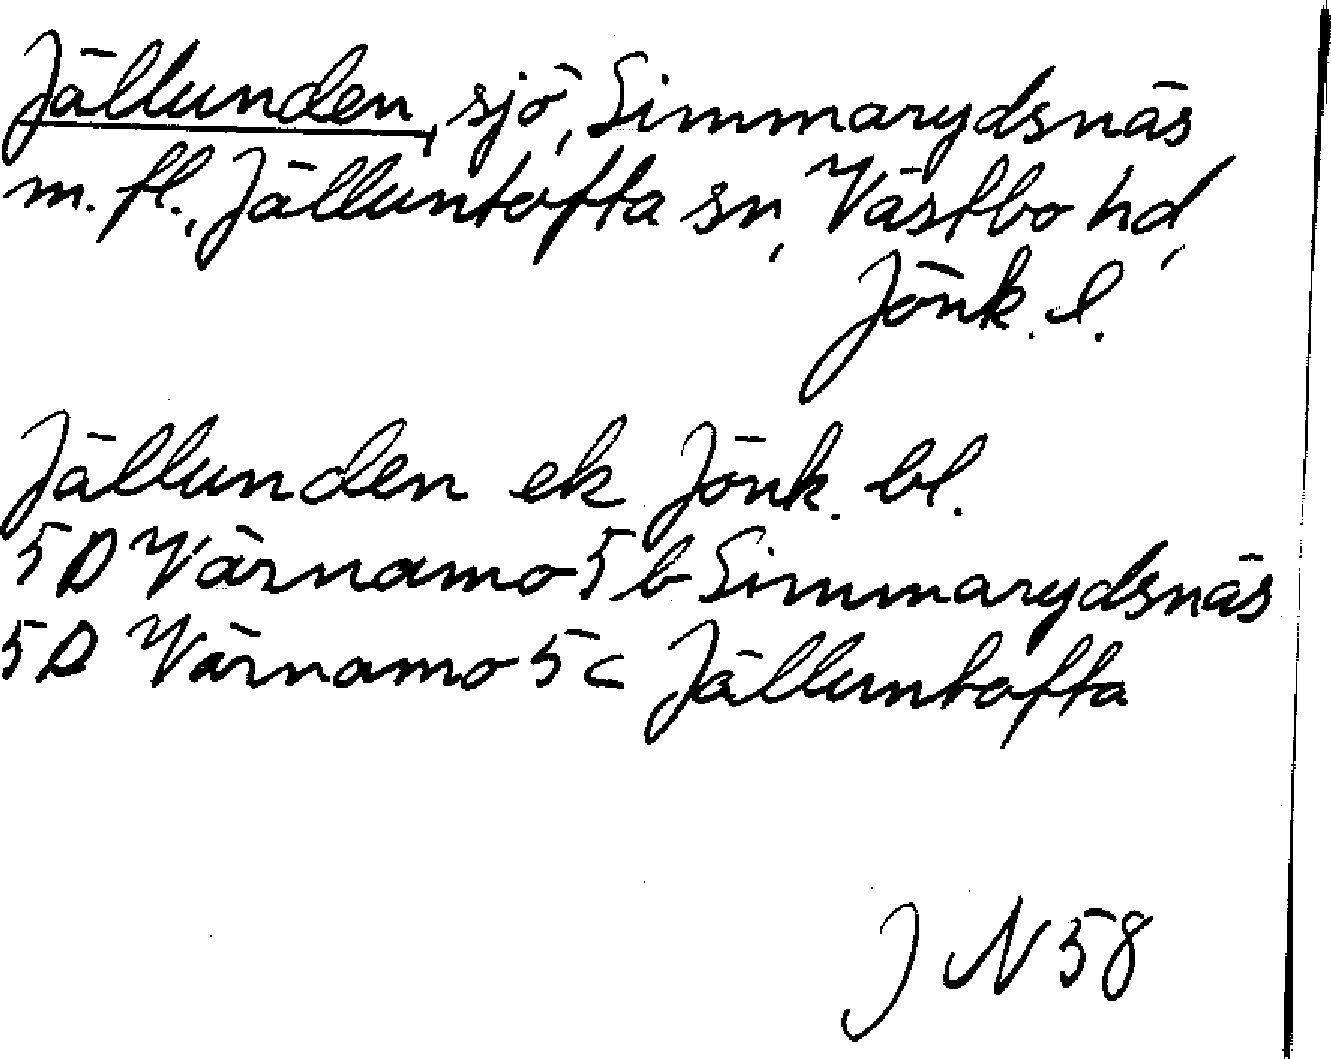 Jällunden, sjö, Simmarydsnäs
m. fl., Jälluntofta sn, Västbo hd,
Jönk. l.
Jällunden ek Jönk. bl.
5D Värnamo 5b Simmarydsnäs
5D Värnamo 5c Jälluntofta
J N 58